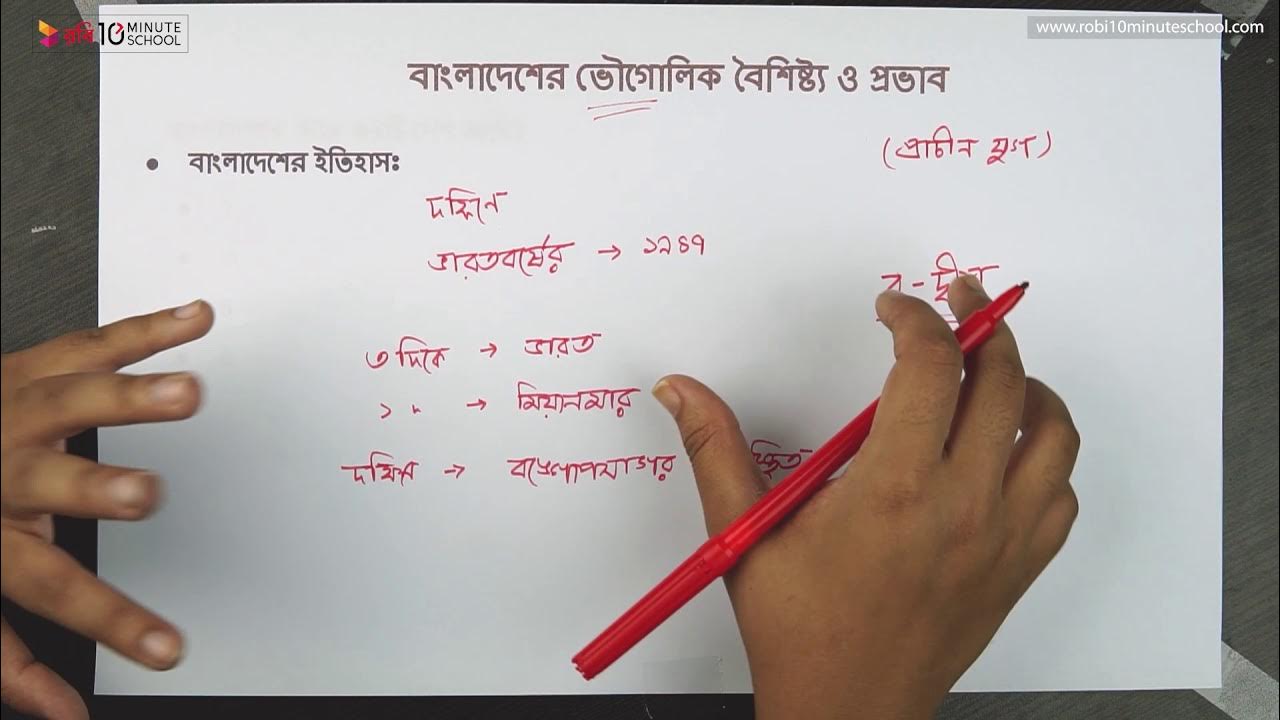 রবি 10 MINUTE SCHOOL
www.robi10minuteschool.com
বাংলাদেশের ভৌগোলিক বৈশিষ্ট্য ও প্রভাব
(প্রাচীন যুগ)
• বাংলাদেশের ইতিহাসঃ
দক্ষিনে
ভারতবর্ষের → ১৯৪৭
ব - দ্বীপ
৩ দিকে → ভারত
১ " → মিয়ানমার
দক্ষিন → বঙ্গোপসাগর